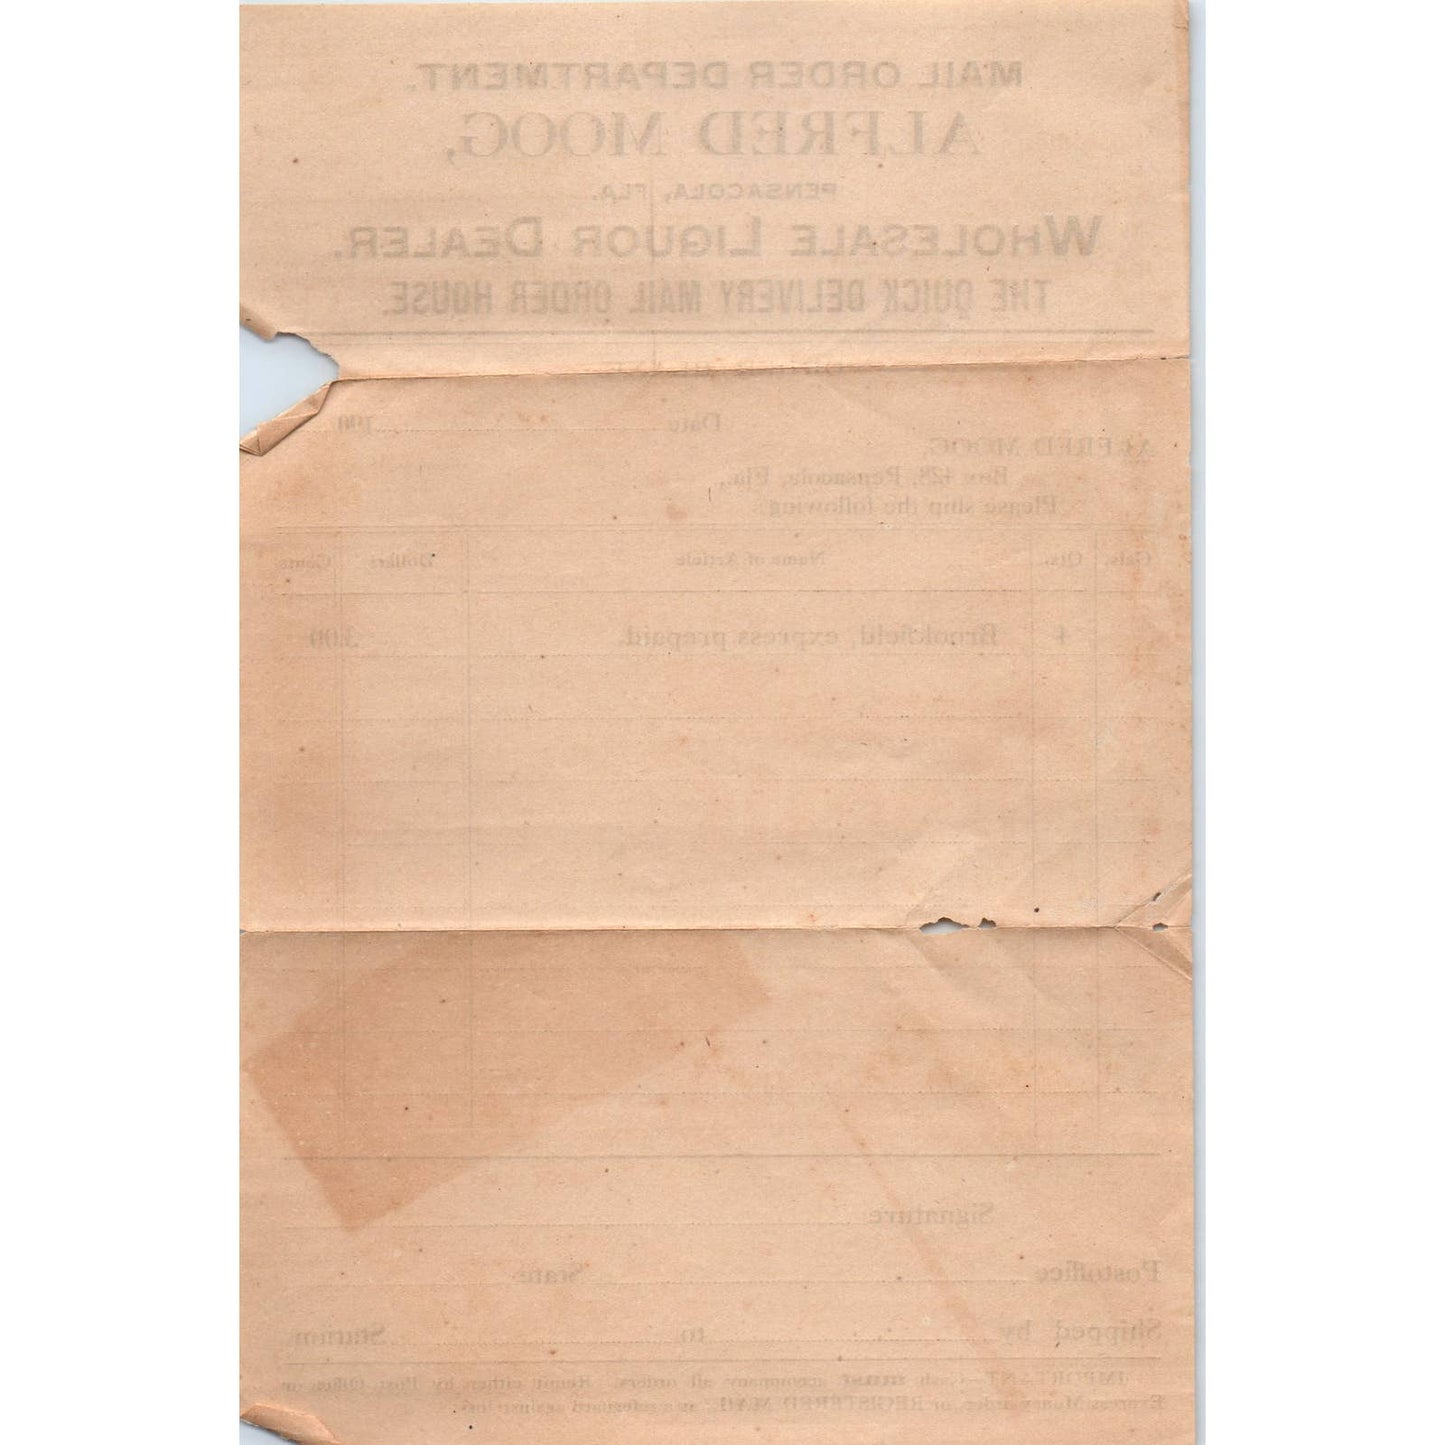 MAIL ORDER DEPARTMENT.
ALFRED MOOG,
PENSACOLA, FLA.
WHOLESALE LIQUOR DEALER.
THE QUICK DELIVERY MAIL ORDER HOUSE.
Date 190
ALFRED MOOG,
Box 428, Pensacola, Fla.,
Please ship the following:
Gals. Qts. Name of Article Dollars Cents
4 Brookfield, express prepaid. 3.00
Signature
Postoffice State
Shipped by to Station
IMPORTANT—Cash MUST accompany all orders. Remit either by Post Office or
Express Money order, or REGISTERED MAIL, against loss.